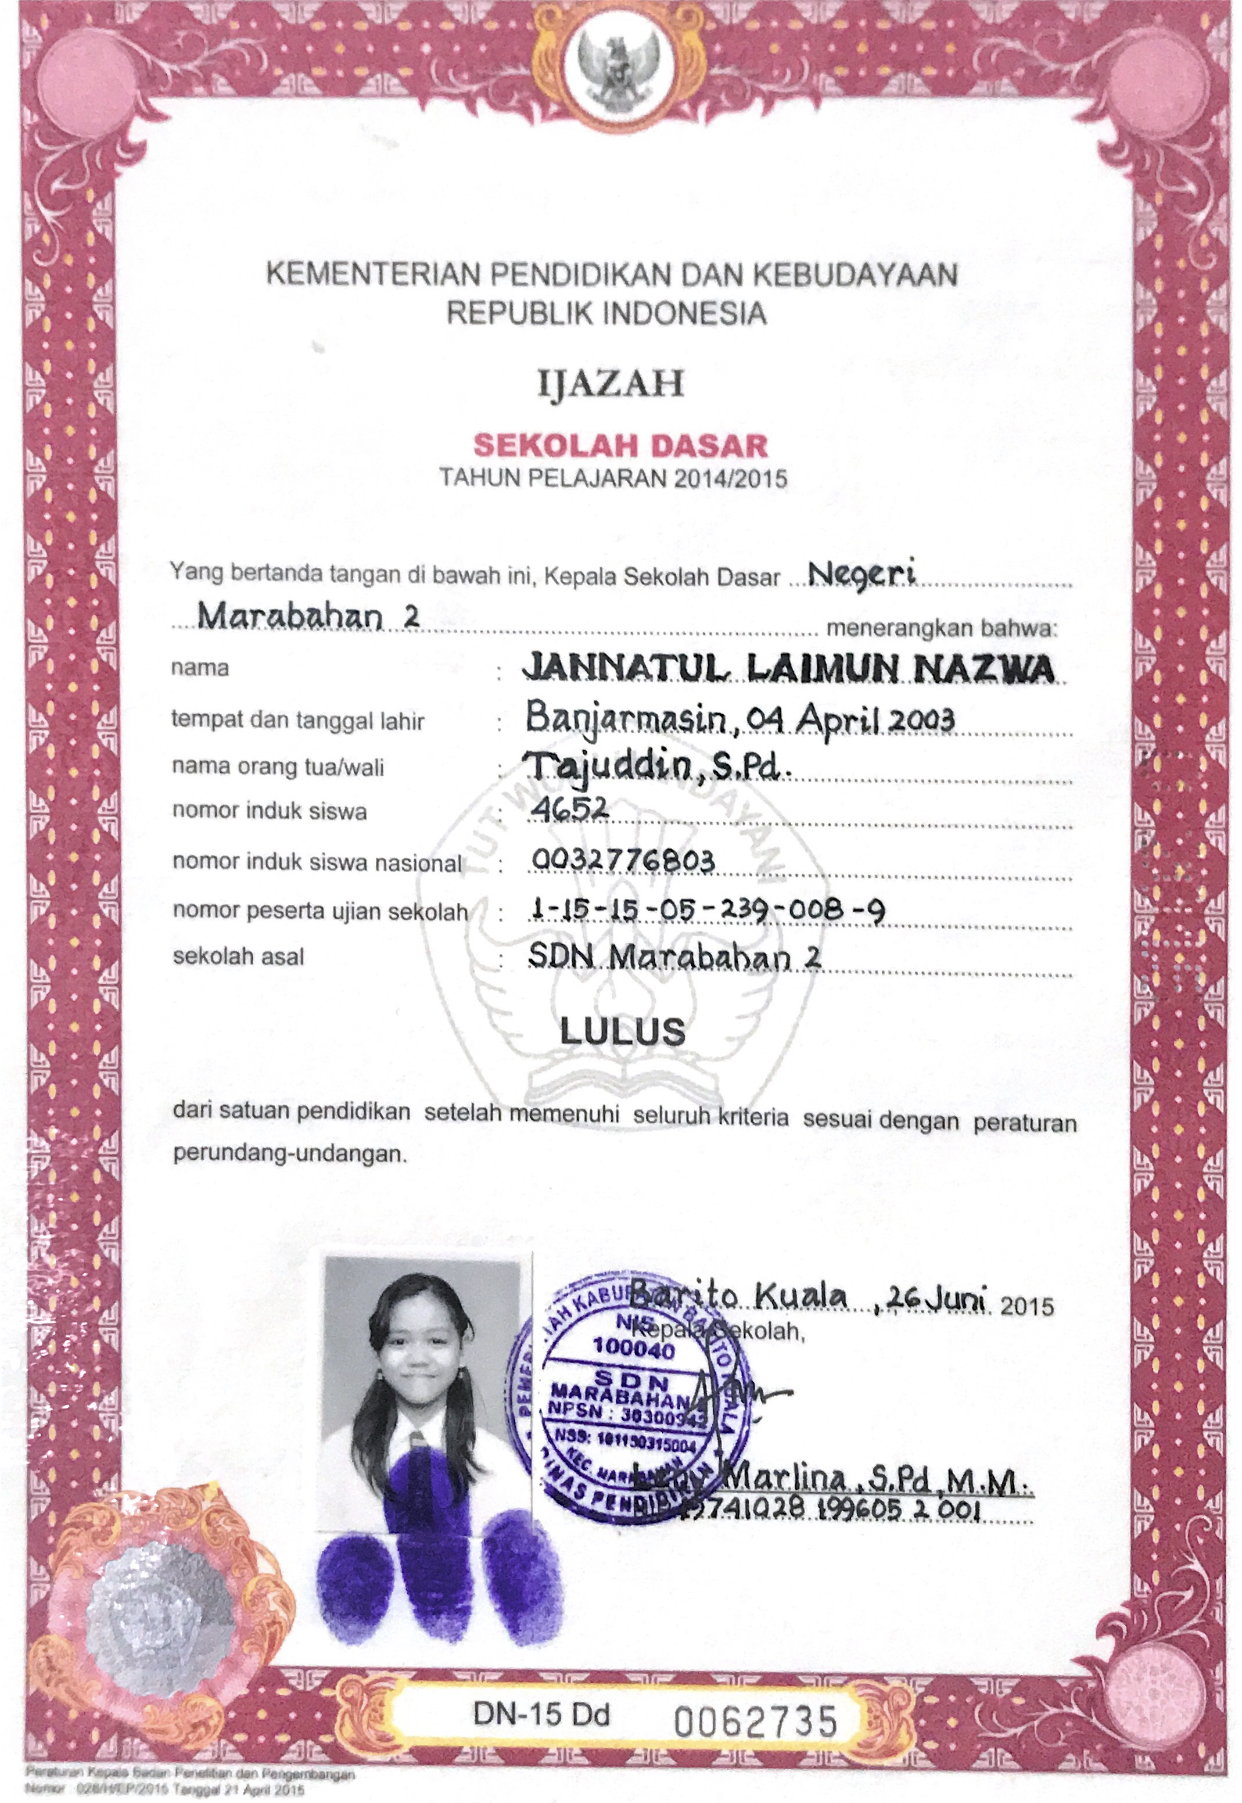 KEMENTERIAN PENDIDIKAN DAN KEBUDAYAAN
REPUBLIK INDONESIA
IJAZAH
SEKOLAH DASAR
TAHUN PELAJARAN 2014/2015
Yang bertanda tangan di bawah ini, Kepala Sekolah Dasar Negeri
Marabahan 2 menerangkan bahwa:
nama : JANNATUL LAIMUN NAZWA
tempat dan tanggal lahir : Banjarmasin, 04 April 2003
nama orang tua/wali : Tajuddin, S.Pd.
nomor induk siswa : 4652
nomor induk siswa nasional : 0032776803
nomor peserta ujian sekolah : 1-15-15-05-239-008-9
sekolah asal : SDN Marabahan 2
TUT WURI HANDAYANI
LULUS
dari satuan pendidikan setelah memenuhi seluruh kriteria sesuai dengan peraturan
perundang-undangan.
Barito Kuala, 26 Juni 2015
Kepala Sekolah,
NIS
100040
SDN
MARABAHAN
NPSN : 30300942
NSS: 101150315004
DINAS PENDIDIKAN
Marlina, S.Pd, M.M.
19741028 199605 2 001
DN-15 Dd 0062735
Peraturan Kepala Badan Penelitian dan Pengembangan
Nomor : 028/H/EP/2015 Tanggal 21 April 2015